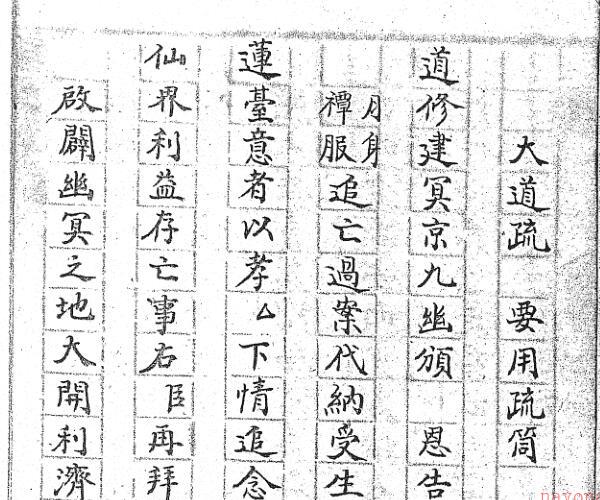 大道疏 要用疏筒
道修建冥京九幽頒 恩告
月身禫服追亡過案代納受生
蓮臺意者以孝厶下情追念
仙界利益存亡事右臣再拜
啟闢幽冥之地大開利濟